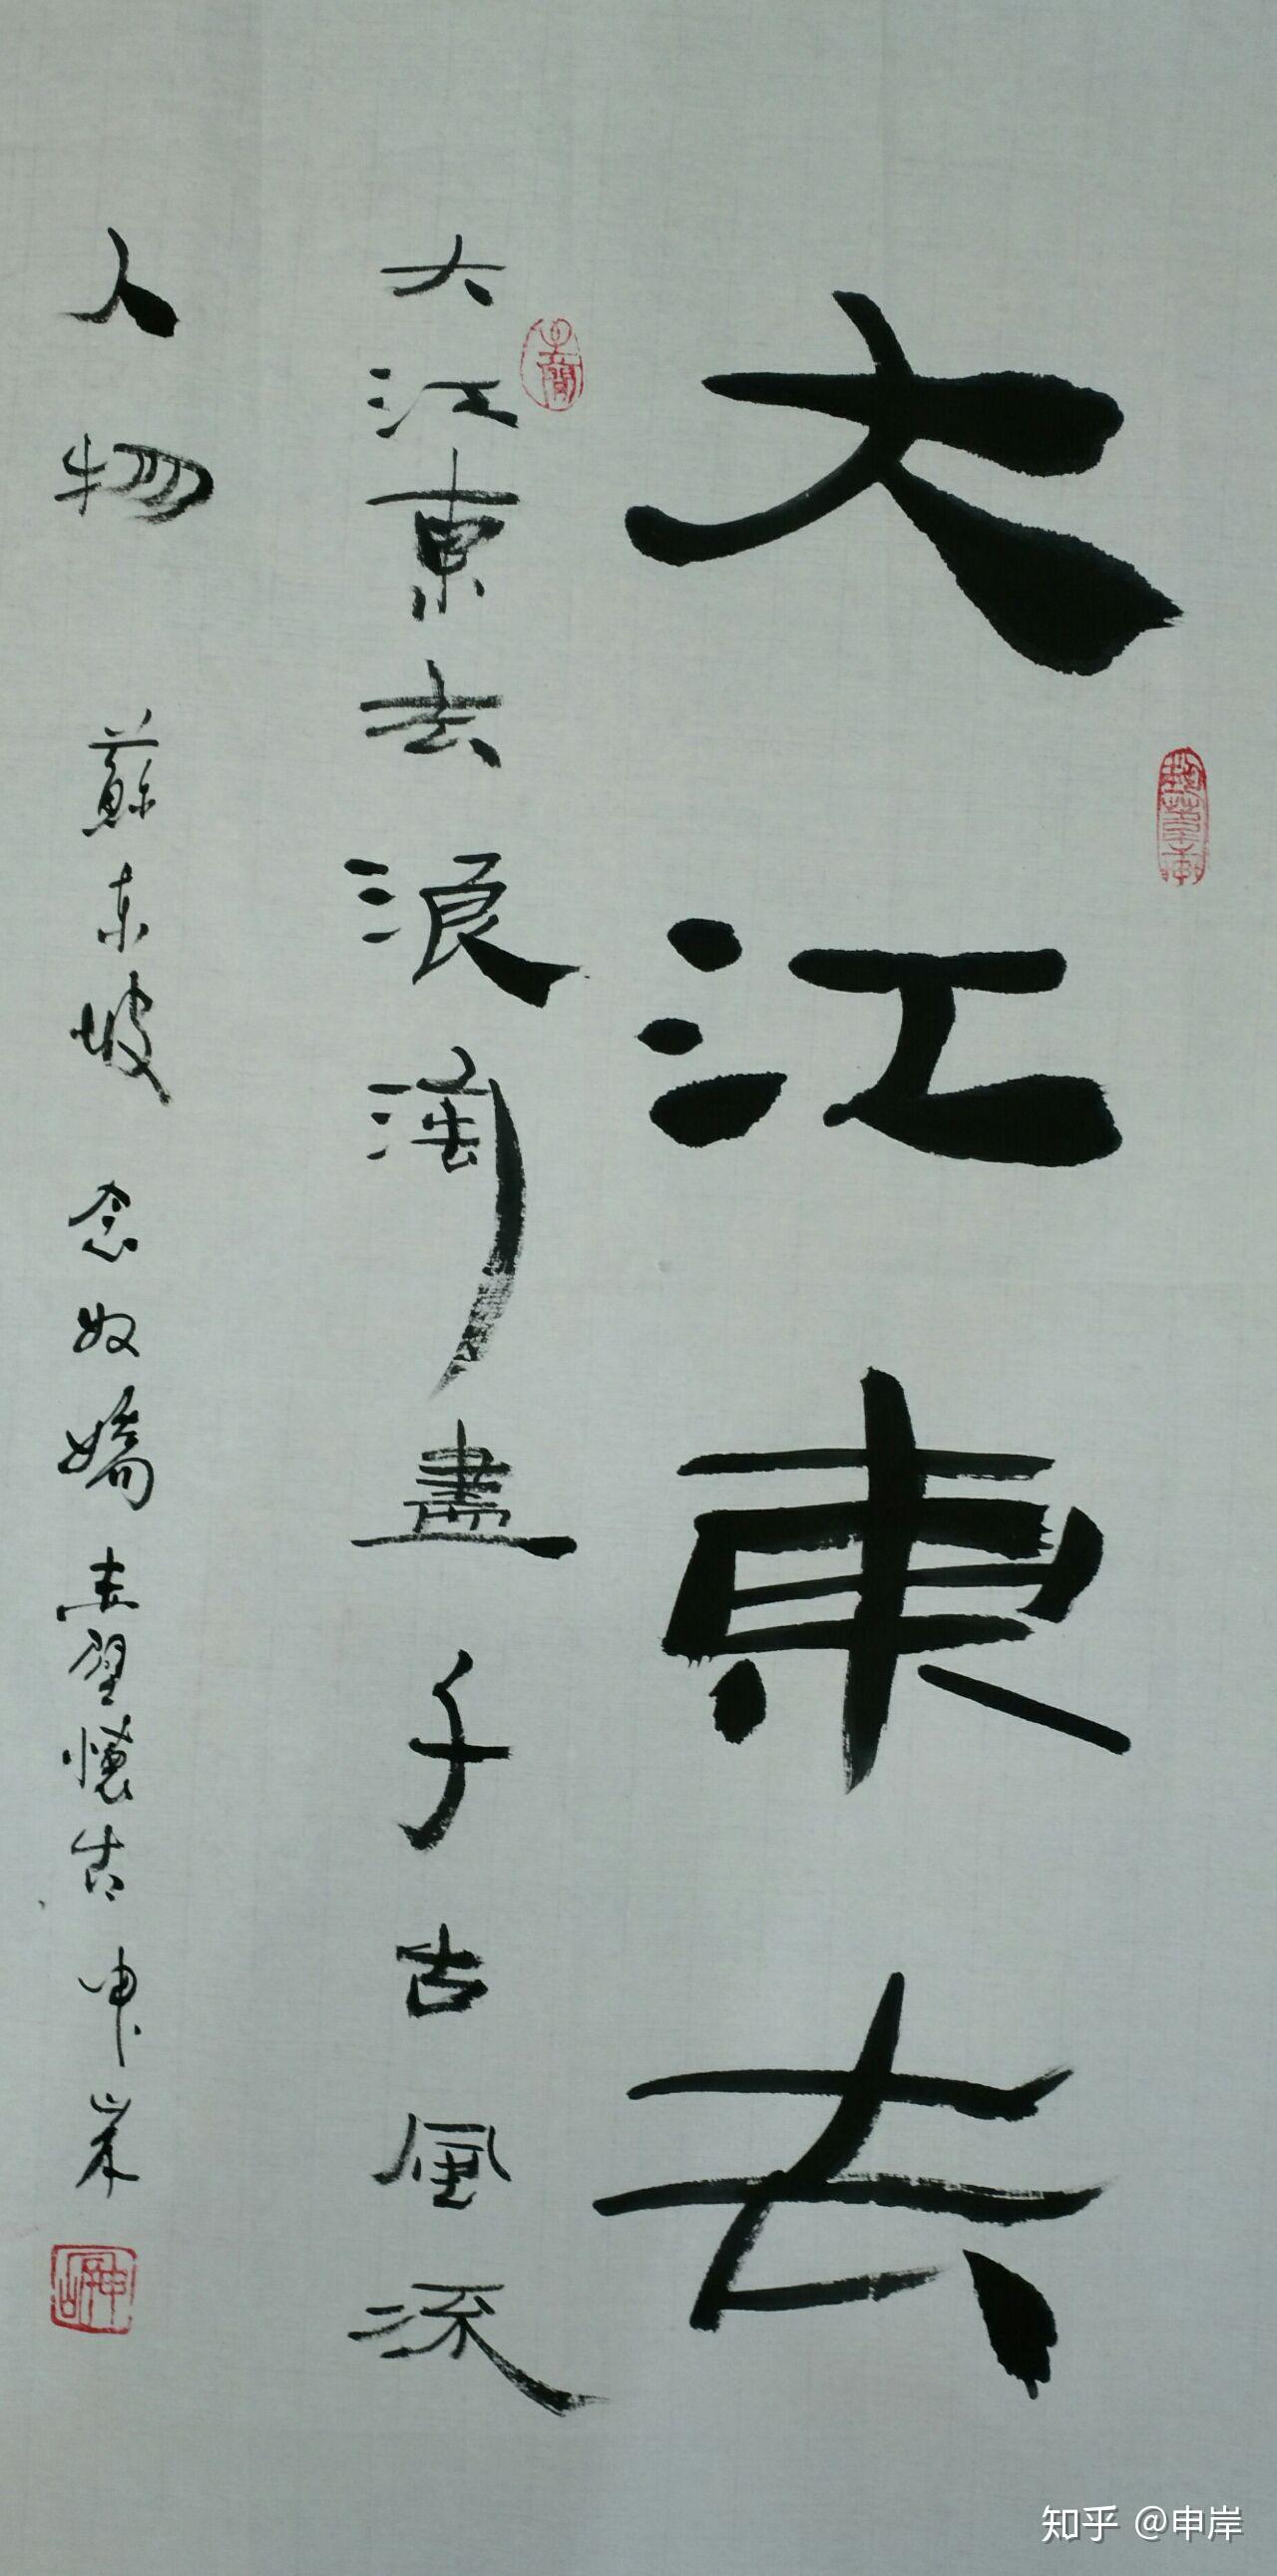 大江東去
大江東去浪淘盡千古風流
人物 蘇東坡 念奴嬌 赤壁懷古 申岸
知乎 @申岸